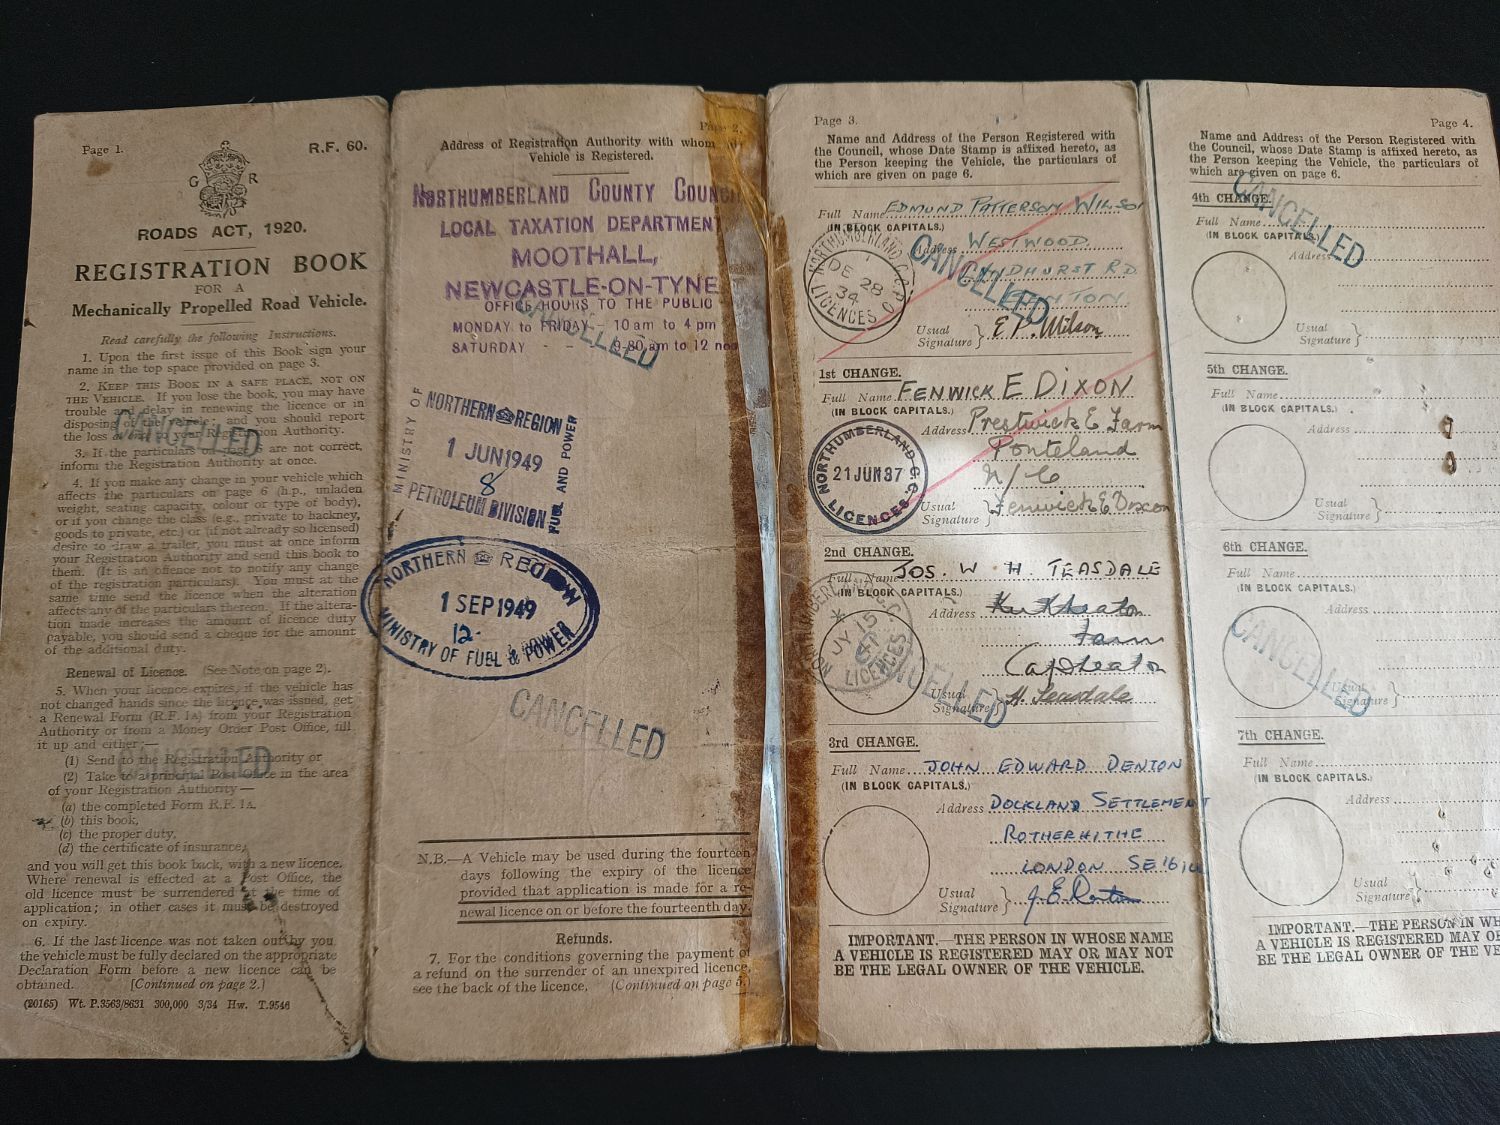 Page 1.
R.F. 60.
G R
ROADS ACT, 1920.
REGISTRATION BOOK
FOR A
Mechanically Propelled Road Vehicle.
Read carefully the following Instructions.
1. Upon the first issue of this Book sign your
name in the top space provided on page 3.
2. KEEP THIS BOOK IN A SAFE PLACE, NOT ON
THE VEHICLE. If you lose the book, you may have
trouble and delay in renewing the licence or in
disposing of the vehicle, and you should report
the loss at once to your Registration Authority.
CANCELLED
3. If the particulars on page 6 are not correct,
inform the Registration Authority at once.
4. If you make any change in your vehicle which
affects the particulars on page 6 (h.p., unladen
weight, seating capacity, colour or type of body),
or if you change the class (e.g., private to hackney,
goods to private, etc.) or (if not already so licensed)
desire to draw a trailer, you must at once inform
your Registration Authority and send this book to
them. (It is an offence not to notify any change
of the registration particulars). You must at the
same time send the licence when the alteration
affects any of the particulars thereon. If the altera-
tion made increases the amount of licence duty
payable, you should send a cheque for the amount
of the additional duty.
Renewal of Licence. (See Note on page 2).
5. When your licence expires, if the vehicle has
not changed hands since the licence was issued, get
a Renewal Form (R.F. 1A) from your Registration
Authority or from a Money Order Post Office, fill
it up and either:—
(1) Send to the Registration Authority or
(2) Take to a principal Post Office in the area
CANCELLED
of your Registration Authority—
(a) the completed Form R.F. 1A,
(b) this book,
(c) the proper duty,
(d) the certificate of insurance,
and you will get this book back, with a new licence.
Where renewal is effected at a Post Office, the
old licence must be surrendered at the time of
application; in other cases it must be destroyed
on expiry.
6. If the last licence was not taken out by you
the vehicle must be fully declared on the appropriate
Declaration Form before a new licence can be
obtained. [Continued on page 2.]
(20165) Wt. P.3563/8631 300,000 3/34 Hw. T.9546
Page 2.
Address of Registration Authority with whom
Vehicle is Registered.
NORTHUMBERLAND COUNTY COUNCIL
LOCAL TAXATION DEPARTMENT
MOOTHALL,
NEWCASTLE-ON-TYNE
OFFICE HOURS TO THE PUBLIC
MONDAY to FRIDAY - 10 am to 4 pm
SATURDAY - - 9-30 am to 12
CANCELLED
MINISTRY OF
NORTHERN REGION
FUEL AND POWER
1 JUN 1949
8
PETROLEUM DIVISION
NORTHERN REGION
1 SEP 1949
12.
MINISTRY OF FUEL & POWER
CANCELLED
N.B.—A Vehicle may be used during the fourteen
days following the expiry of the licence
provided that application is made for a re-
newal licence on or before the fourteenth day.
Refunds.
7. For the conditions governing the payment of
a refund on the surrender of an unexpired licence,
see the back of the licence. (Continued on page 5.)
Page 3.
Name and Address of the Person Registered with
the Council, whose Date Stamp is affixed hereto, as
the Person keeping the Vehicle, the particulars of
which are given on page 6.
Full Name EDMUND PATTERSON WILSON
(IN BLOCK CAPITALS.)
Address WESTWOOD
RD
CANCELLED
NORTHUMBERLAND C.C.
DE 28
34
LICENCES
Usual
Signature } E P. Wilson
1st CHANGE.
Full Name FENWICK E DIXON
(IN BLOCK CAPITALS.)
Address Prestwick E Farm
Ponteland
N/C
NORTHUMBERLAND C.C.
21 JUN 37
LICENCES
Usual
Signature } Fenwick E Dixon
2nd CHANGE.
Full Name JOS. W H TEASDALE
(IN BLOCK CAPITALS.)
Address Kirkheaton
Farm
Capheaton
JY 15
LICENCES
CANCELLED
Usual
Signature } H. Teasdale
3rd CHANGE.
Full Name JOHN EDWARD DENTON
(IN BLOCK CAPITALS.)
Address DOCKLAND SETTLEMENT
ROTHERHITHE
LONDON SE16
Usual
Signature } J. E. Denton
IMPORTANT.—THE PERSON IN WHOSE NAME
A VEHICLE IS REGISTERED MAY OR MAY NOT
BE THE LEGAL OWNER OF THE VEHICLE.
Page 4.
Name and Address of the Person Registered with
the Council, whose Date Stamp is affixed hereto, as
the Person keeping the Vehicle, the particulars of
which are given on page 6.
4th CHANGE.
Full Name
(IN BLOCK CAPITALS.)
Address
CANCELLED
Usual
Signature }
5th CHANGE.
Full Name
(IN BLOCK CAPITALS.)
Address
Usual
Signature }
6th CHANGE.
Full Name
(IN BLOCK CAPITALS.)
Address
CANCELLED
Usual
Signature }
7th CHANGE.
Full Name
(IN BLOCK CAPITALS.)
Address
Usual
Signature }
IMPORTANT.—THE PERSON IN WH
A VEHICLE IS REGISTERED MAY OR
BE THE LEGAL OWNER OF THE VE